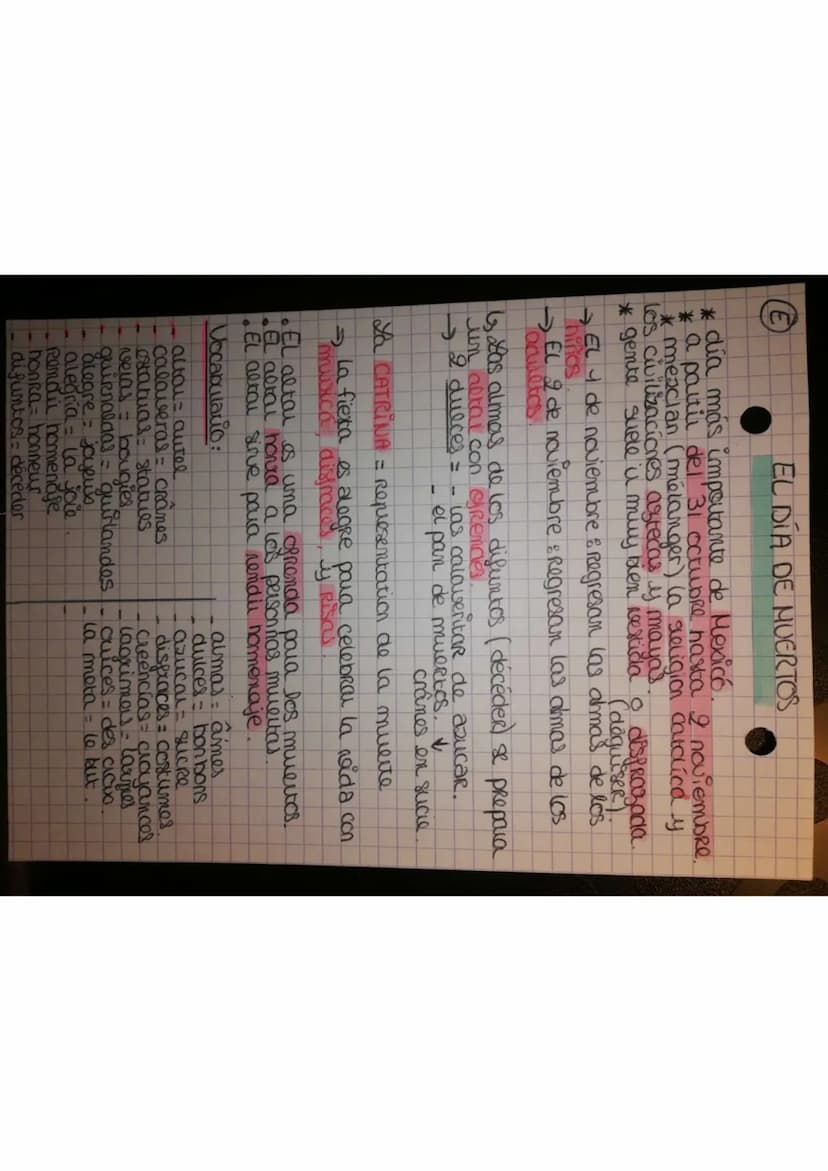 E
EL DÍA DE MUERTOS
* día más importante de Mexicó.
* a partir del 31 octubre hasta 2 noviembre.
* mezclan (mélanger) la religion católica y
les civilizaciones aztecas y mayas.
* gente suele ir muy bien vestida o disfrazada.
(déguiser).
→ El 1 de noviembre : regresan las almas de los
niños.
→ El 2 de noviembre : regresan las almas de los
adultos.
↳ Las almas de los difuntos (décéder) se prepara
un altar con ofrendas.
→ 2 dulces = - las calaveritar de azucar.
- el pan de muertos. ↓
crânes en sucre.
La CATRINA = representation de la muerte
→ la fiesta es alegre para celebrar la
musica, disfraces, y risas.
• El altar es una ofrenda para los muertos.
• El altar honra a los personnas muertas.
• El altar sirve para rendir homenaje.
Vocabulario:
- altar = autel
- calaveras = crânes
- estatuas = statues
- velas = bougies
- guirnaldas = guirlandes
- alegre = joyeux
- alegría = la joie.
- rendir homenaje
- honra = honneur
- difuntos = décéder
- almas = âmes
- dulces = bonbons
- azucar = sucre
- disfraces = costumes.
- creencias = croyances
- lagrimas = larmes
- cruces = des croix.
- la meta = le but.